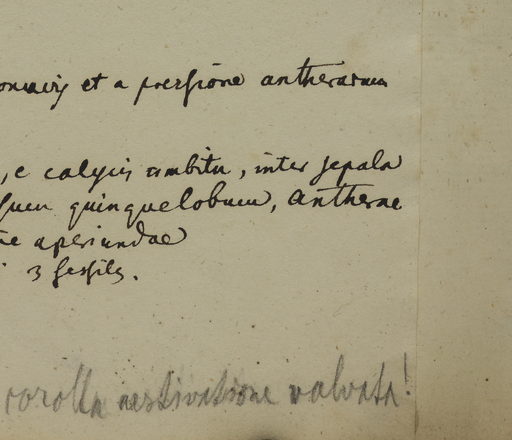 et a pressione antherarum
, e calycis ambitu, inter sepala
quinquelobum, Antherae
aperiundae
3 sessiles.
corolla aestivatione valvata!